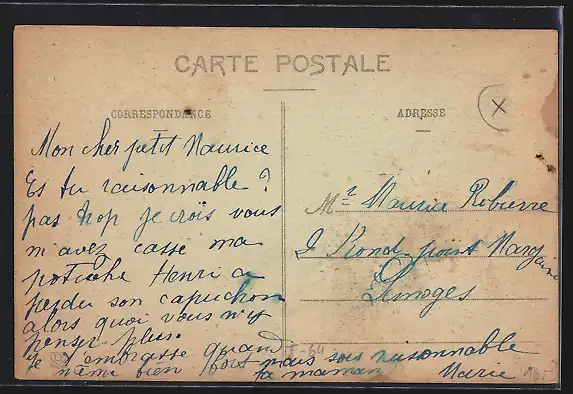 CARTE POSTALE
CORRESPONDANCE
ADRESSE
Mon cher petit Maurice
Es tu raisonnable ?
pas trop je crois vous
m'avez casse ma
potiche Henri a
perdu son capuchon
alors quoi vous n'y
penser plus.
Je t'embrasse quand
même bien fois mais sois raisonnable
ta maman Marie
Mr Maurice
2 Rond point
Limoges